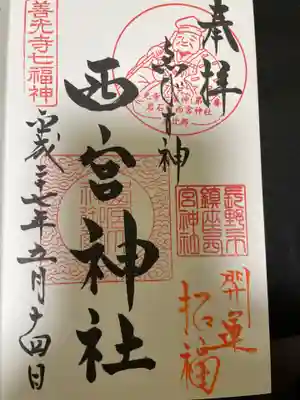 奉拝
ゑびす神
西宮神社
善光寺七福神
平成二十七年五月十四日
長野市
鎮座西
宮神社
開運
招福